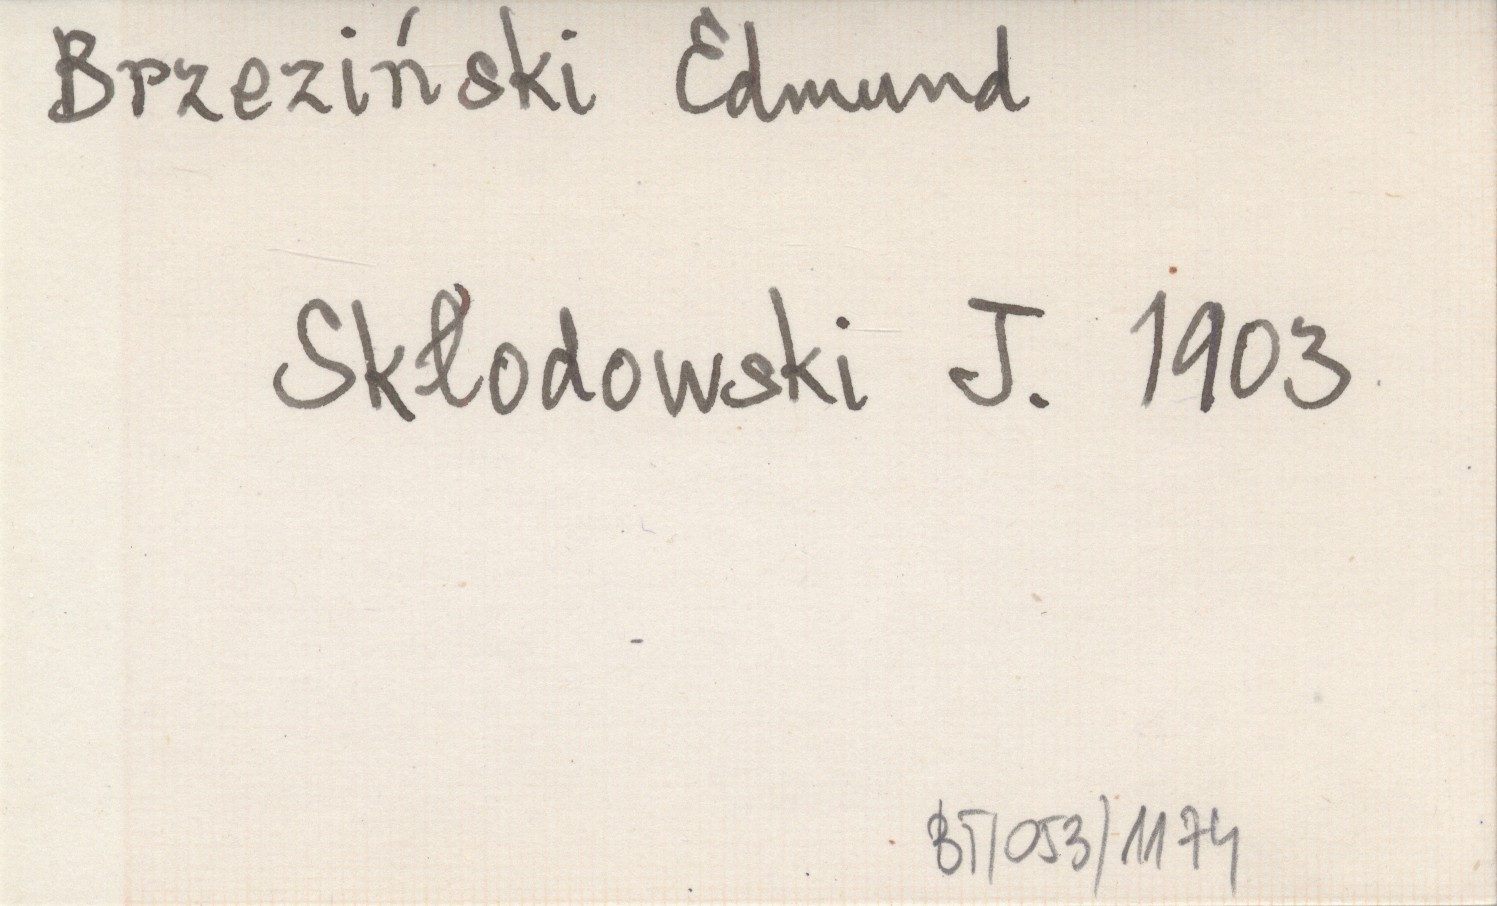 Brzeziński Edmund
Skłodowski J. 1903
BT/053/1174